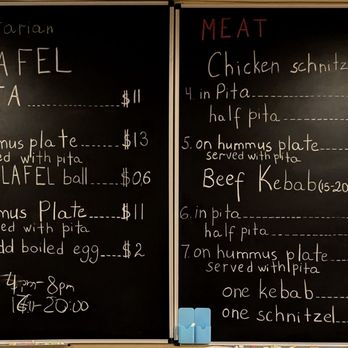 tarian
AFEL
TA ----------- $11
mmus plate ---- $13
ed with pita
LAFEL ball ---- $0.6
mus Plate ---- $11
d with pita
dd boiled egg --- $2
4pm- 8pm
-20:00
MEAT
Chicken schnitz
4. in Pita
half pita
5. on hummus plate
served with pita
Beef Kebab (15-20
6. in pita
half pita
7. on hummus plate
served with pita
one kebab
one schnitzel